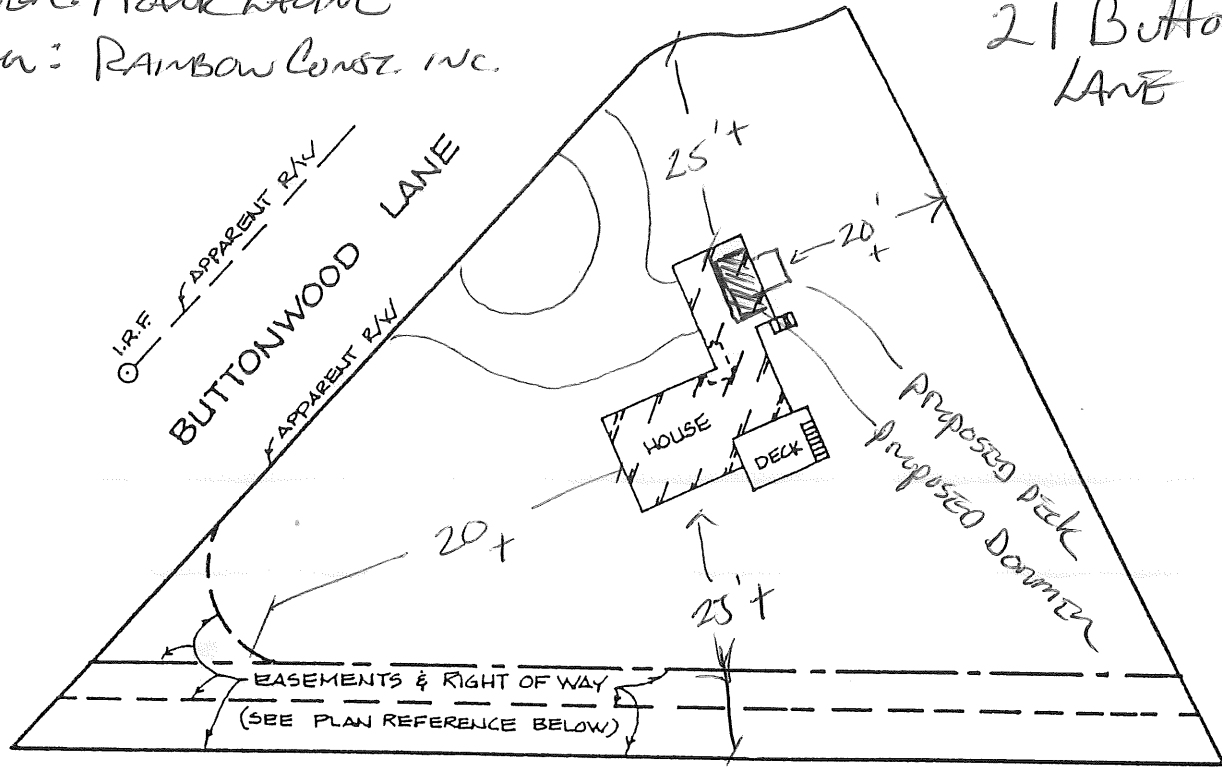 : RAINBOW CONST. INC.
21 Butto
LANE
I.R.F.
APPARENT R/W
BUTTONWOOD LANE
APPARENT R/W
25'+
20'+
HOUSE
DECK
PROPOSED DECK
PROPOSED DORMER
20+
25'+
EASEMENTS & RIGHT OF WAY
(SEE PLAN REFERENCE BELOW)